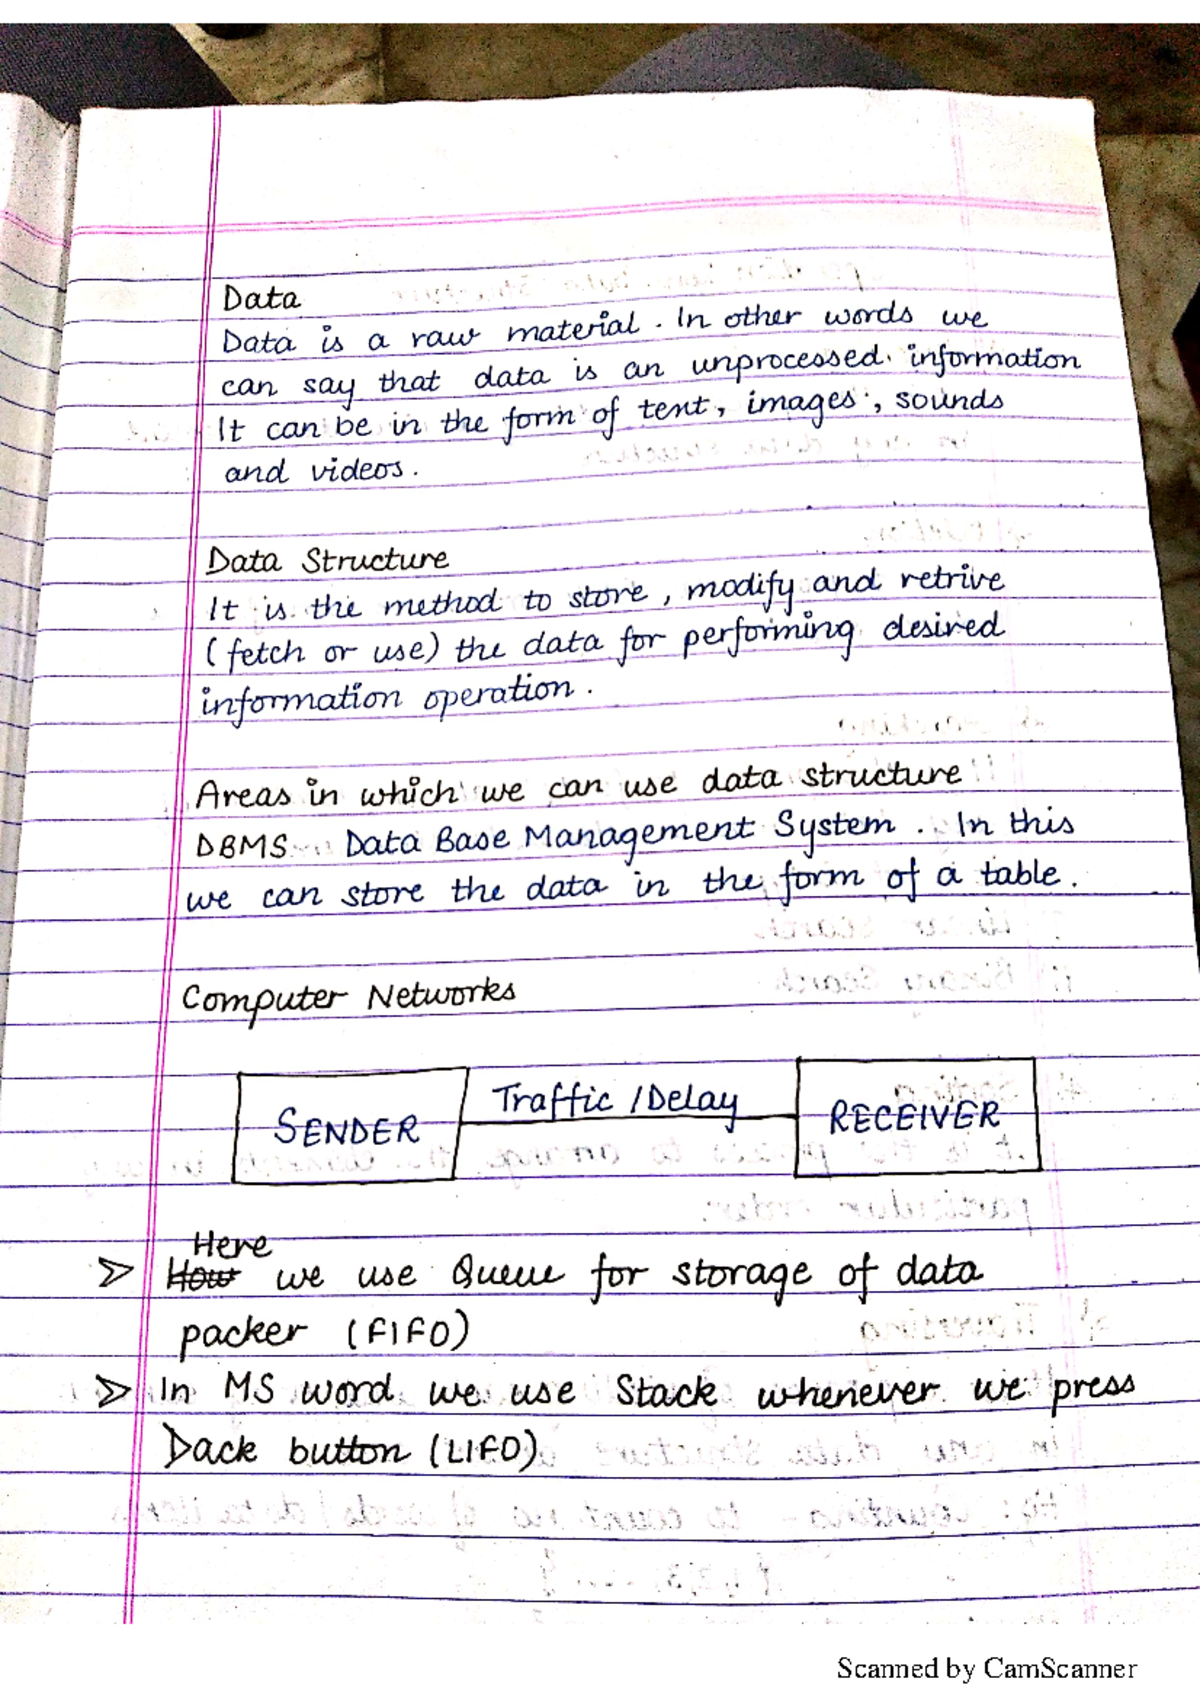 Data
Data is a raw material. In other words we
can say that data is an unprocessed. information
It can be in the form of tent, images, sounds
and videos.
Data Structure
It is the method to store, modify and retrive
(fetch or use) the data for performing desired
information operation.
Areas in which we can use data structure
DBMS Data Base Management System. In this
we can store the data in the form of a table.
Computer Networks
SENDER Traffic /Delay RECEIVER
Here
> How we use Queue for storage of data
packer (FIFO)
> In MS word we use Stack whenever we press
Dack button (LIFO)
Scanned by CamScanner